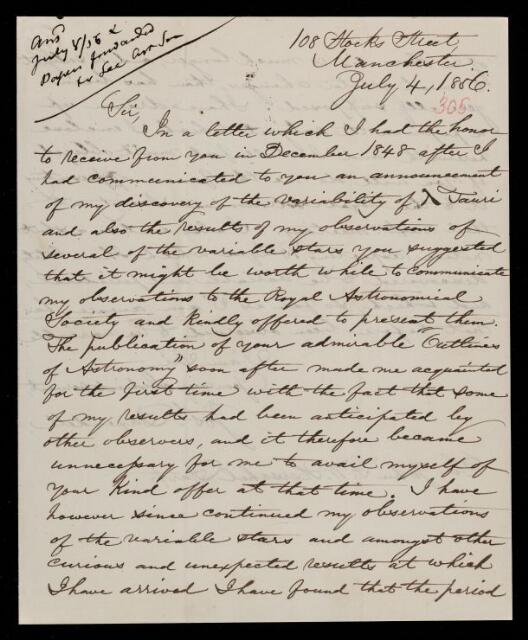 Ansd
July 8/56
Paper forwarded
to Sec Ast Soc
108 Stocks Street
Manchester
July 4, 1856.
305
Sir,
In a letter which I had the honor
to receive from you in December 1848 after I
had communicated to you an announcement
of my discovery of the variability of λ Tauri
and also the results of my observations of
several of the variable stars you suggested
that it might be worth while to communicate
my observations to the Royal Astronomical
Society and kindly offered to present them.
The publication of your admirable "Outlines
of Astronomy" soon after made me acquainted
for the first time with the fact that some
of my results had been anticipated by
other observers, and it therefore became
unnecessary for me to avail myself of
your kind offer at that time. I have
however since continued my observations
of the variable stars and amongst other
curious and unexpected results at which
I have arrived I have found that the period